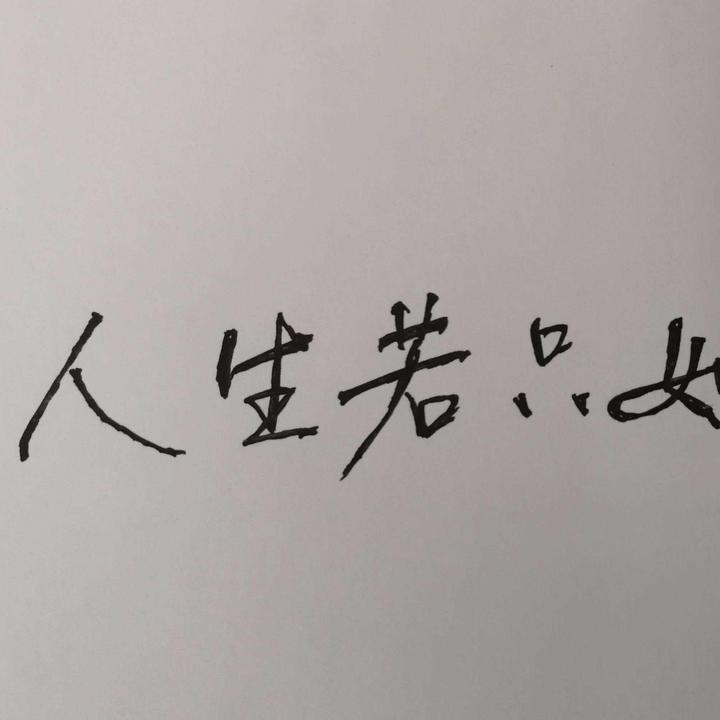 人生若只